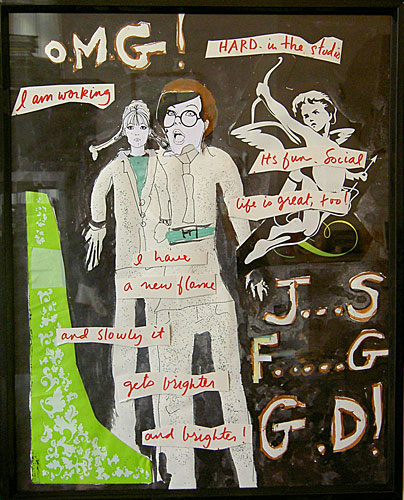 O.M.G!
HARD. in the studio
I am working
Its fun. Social
life is great, too!
I have
a new flame
and slowly it
gets brighter
and brighter!
J...S
F.....G
G.D!